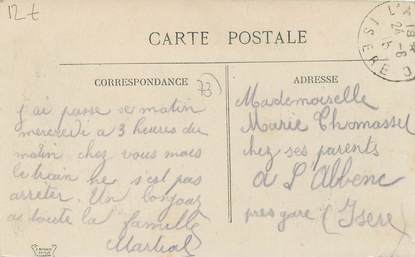 12 t
CARTE POSTALE
CORRESPONDANCE
73
ADRESSE
j'ai passé ce matin
mercredi a 3 heures du
matin chez vous mais
le train ne s'est pas
arreter. Un bonjour
a toute la famille
Martial
Mademoiselle
Marie Thomasset
chez ses parents
à L'Albenc
pres gare (Isere)
L'A
24 -6
ISERE